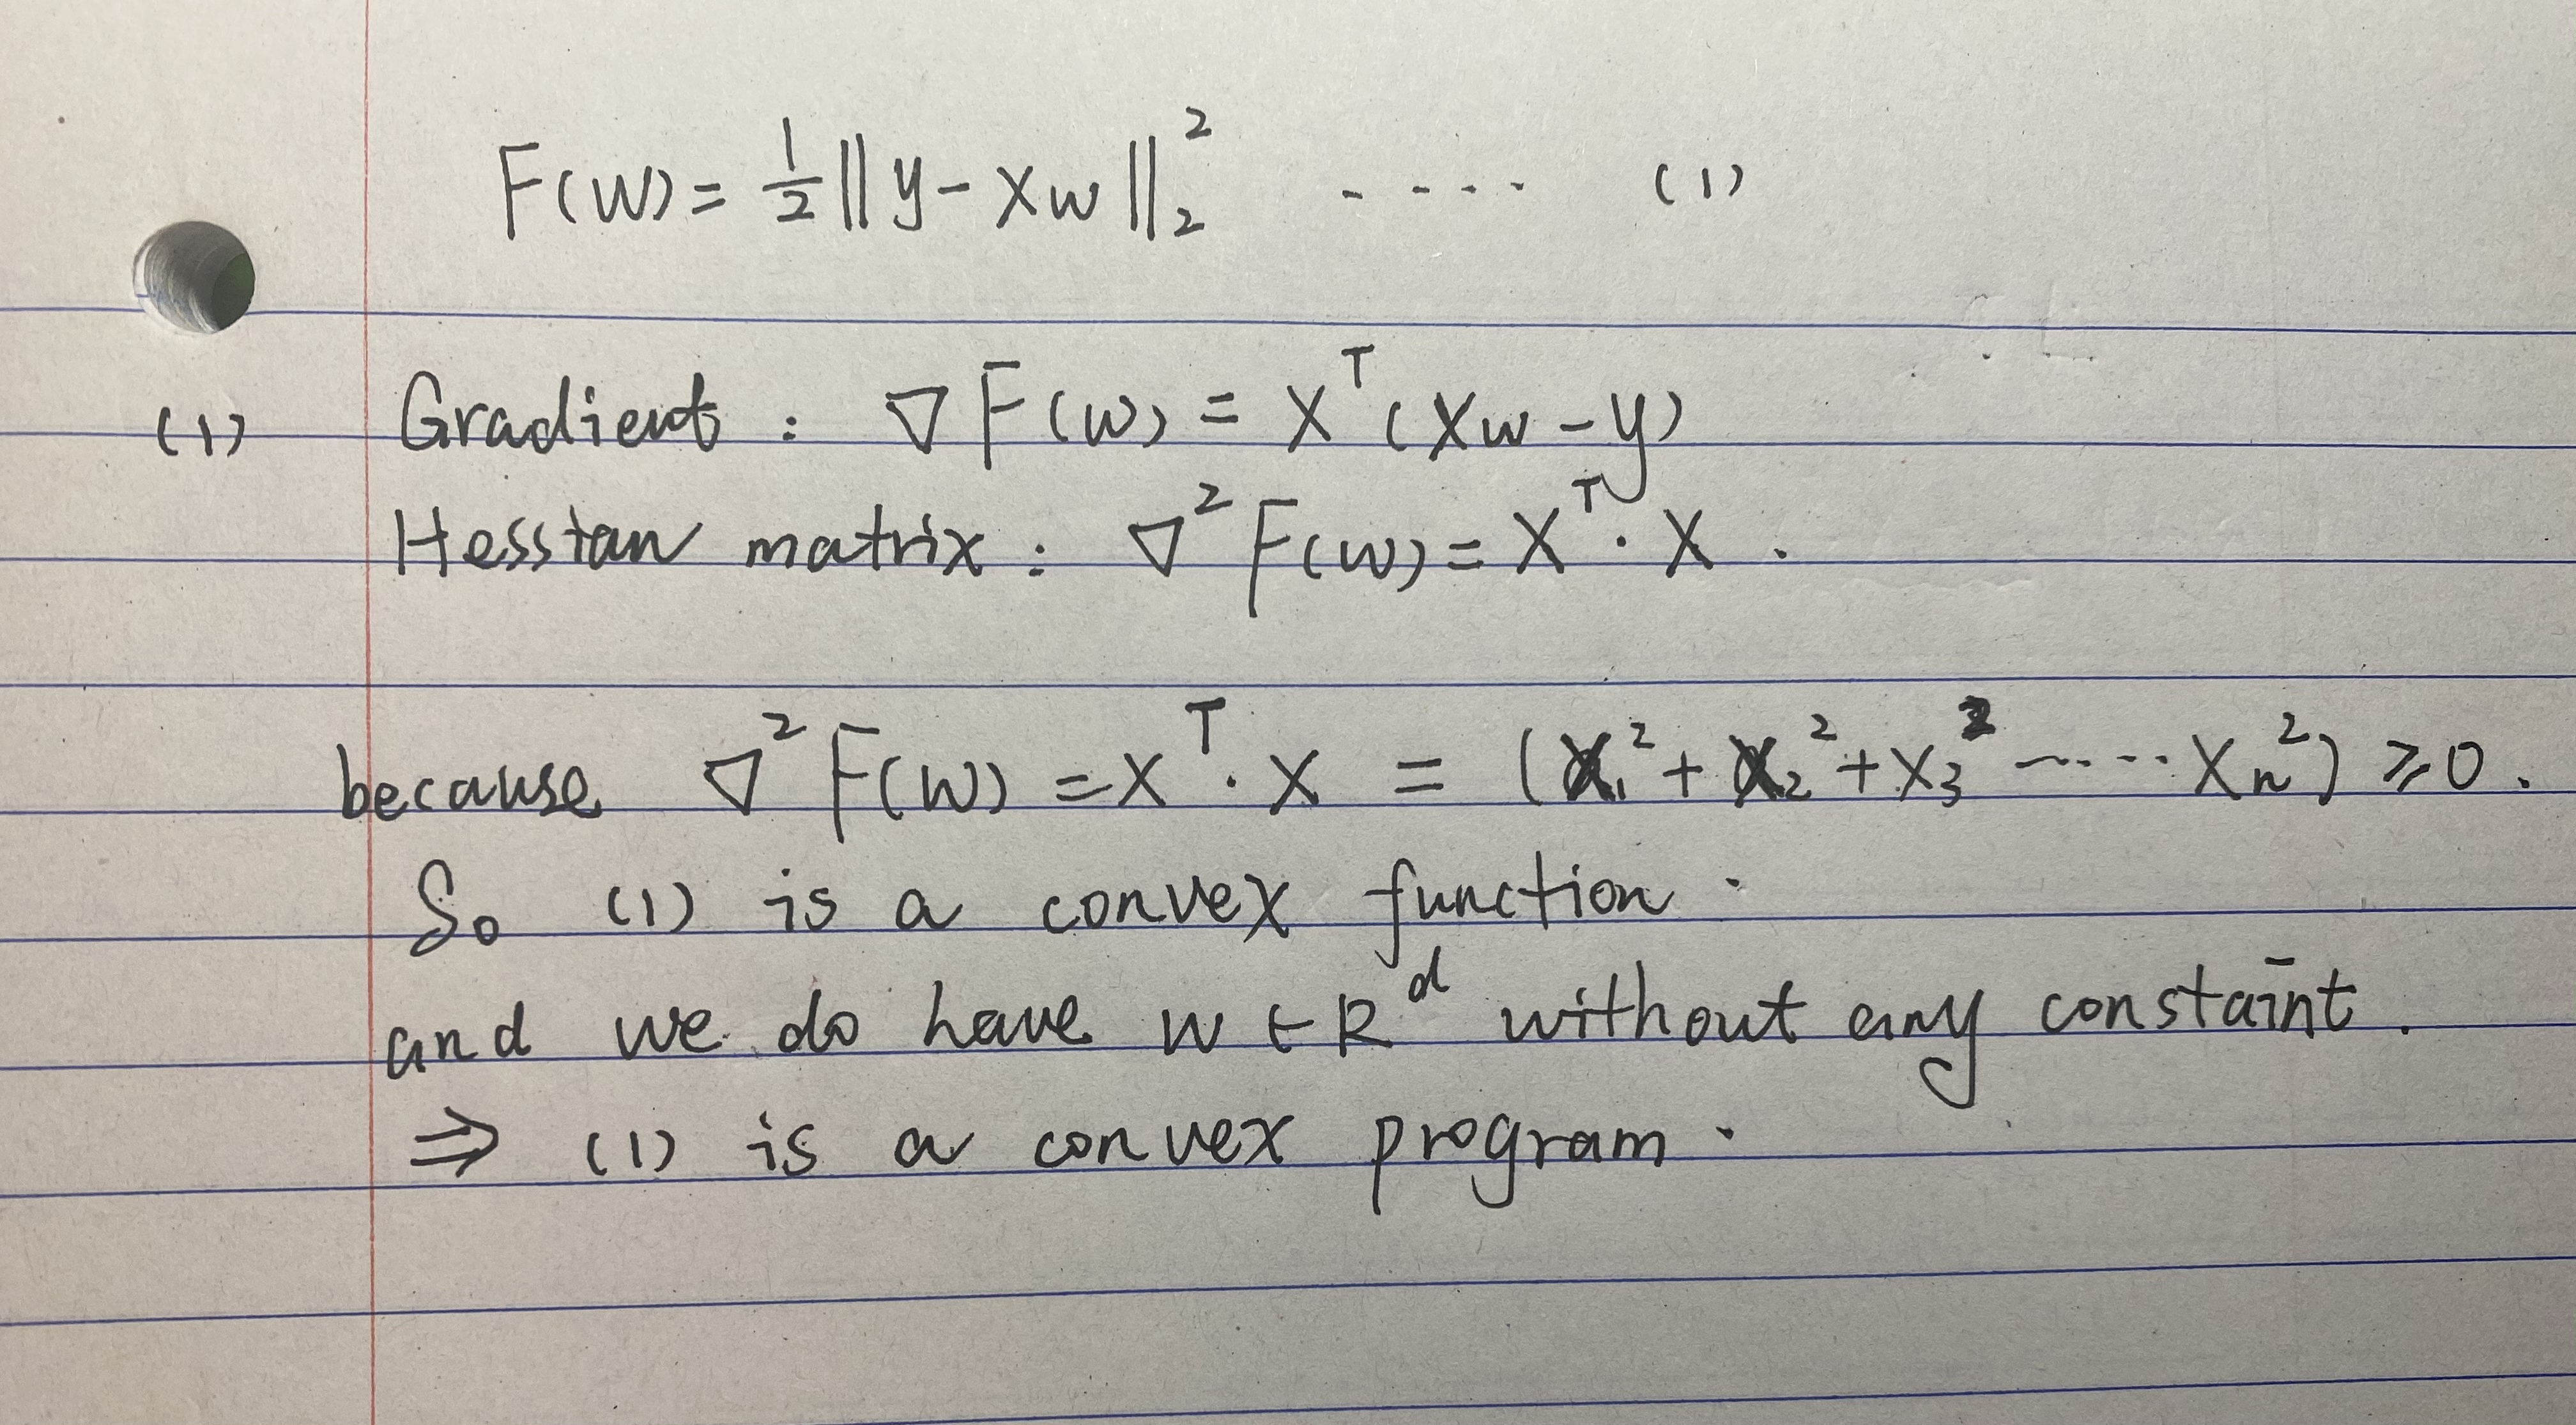 F(w) = 1/2 ||y - Xw||₂² - - - - (1)
(1) Gradient : ∇F(w) = Xᵀ(Xw - y)
Hesstan matrix : ∇²F(w) = Xᵀ · X .
because ∇²F(w) = Xᵀ · X = (X₁² + X₂² + X₃² ······ Xₙ²) ⩾ 0 .
So (1) is a convex function .
and we do have w ∈ Rᵈ without any constaint .
⇒ (1) is a convex program .